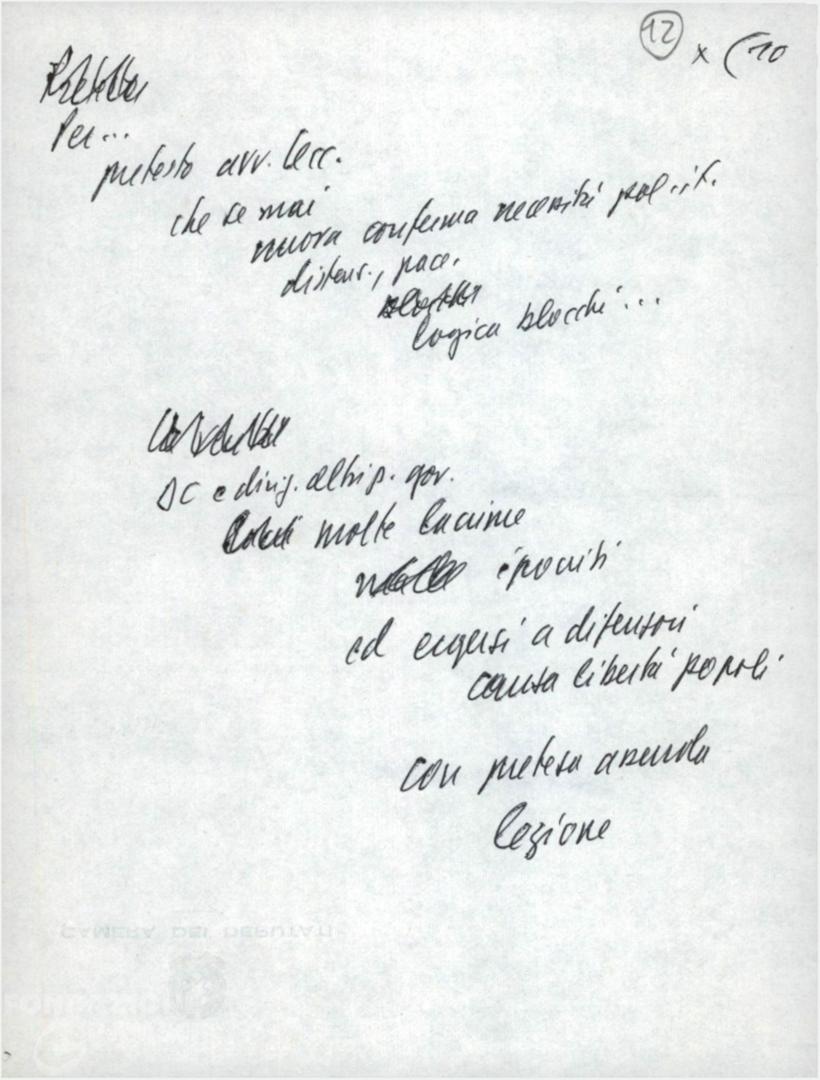 12 x (10
Per...
pretesto avv. Cecc.
che se mai
nuova conferma necessità pol. it.
distens., pace.
logica blocchi...
DC e dirig. altri p. gov.
molte lacrime
ipocriti
ed ergersi a difensori
causa libertà popoli
con pretesa assurda
lezione
CAMERA DEI DEPUTATI